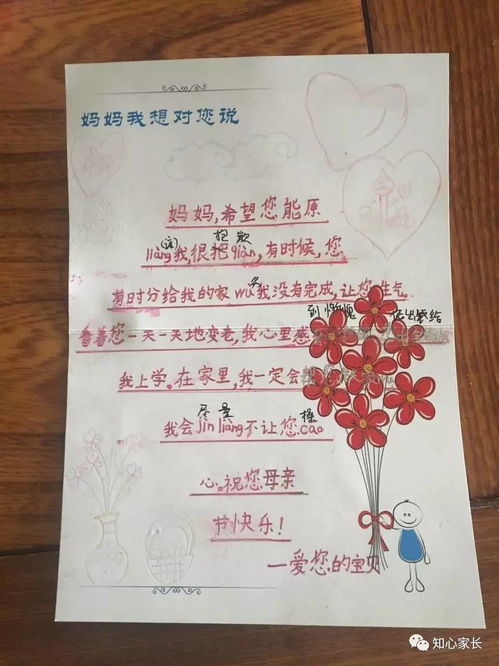 妈妈我想对您说
妈妈,希望您能原
liàng(谅)我,很把qiàn,有时候,您
抱歉
有时分给我的家wù我没有完成,让您生气。
务
看着您一天一天地变老,我心里感
到惭愧 给
我上学。在家里,我一定会
我会jìn liàng不让您cāo
尽量 操
心。祝您母亲
节快乐!
—爱您的宝贝
知心家长